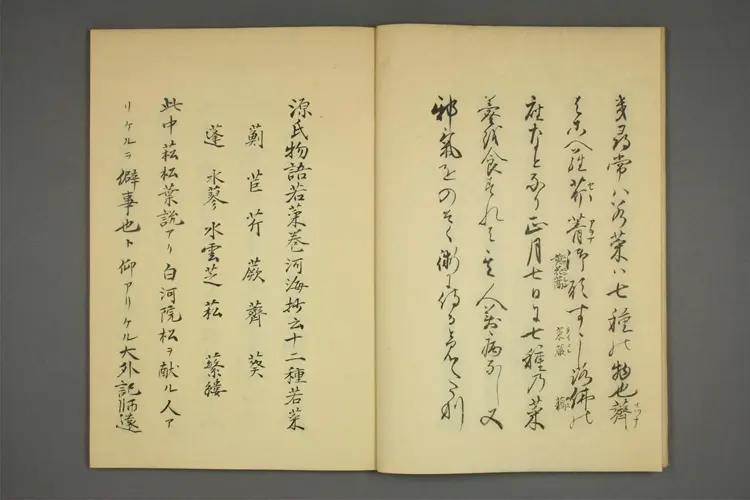 又尋常ハ若菜ハ七種の物也薺
はこへら芹菁御形すゝしろ佛の
座なと也正月七日に七種乃菜
羹を食すれハ其人万病なし又
邪氣をのそく術に侍る見えたり
源氏物語若菜巻河海抄云十二種若菜
薊 苣 芹 蕨 薺 葵
蓬 水蓼 水雲 芝 菘 蘩蔞
此中菘松葉説アリ白河院松ヲ献ル人ア
リケルヲ僻事也ト仰アリケル大外記師遠